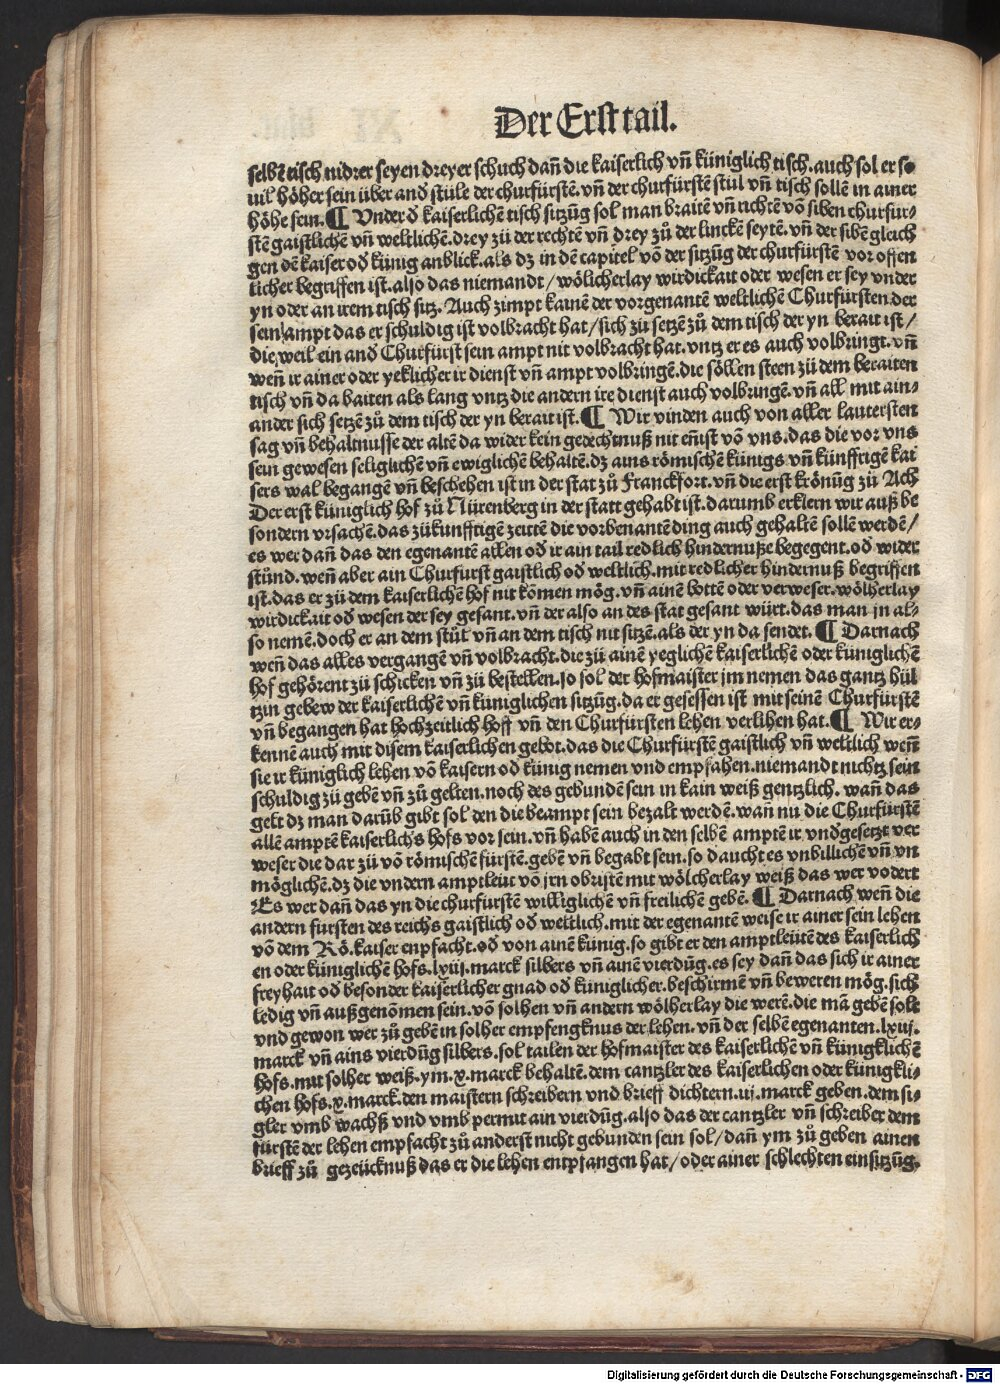 Der Erst tail.
selbẽ tisch nidrer seyen dreyer schuch dañ die kaiserlich vñ küniglich tisch. auch sol er so
uil höher sein über and̃ stüle der churfürstẽ. vñ der churfürstẽ stul vñ tisch sollẽ in ainer
höhe sein. ¶ Vnder d̃ kaiserlichẽ tisch sitzũg sol man braitẽ vñ richtẽ võ siben churfür⸗
stẽ gaistlichẽ vñ weltlichẽ. drey zü der rechtẽ vñ drey zů der linckẽ seytẽ. vñ der sibẽ gleich
gen dẽ kaiser od̃ künig anblick. als dz in dẽ capitel võ der sitzũg der churfürstẽ vor offen
licher begriffen ist. also das niemandt / wölicherlay wirdickait oder wesen er sey vnder
yn oder an irem tisch sitz. Auch zimpt kainẽ der vorgenantẽ weltlichẽ Churfürsten der
sein ampt das er schuldig ist volbracht hat / sich zu setzẽ zů dem tisch der yn berait ist /
die weil ein and̃ Churfürst sein ampt nit volbracht hat. vntz er es auch volbringt. vñ
weñ ir ainer oder yeklicher ir dienst vñ ampt volbringẽ. die söllen steen zü dem beraiten
tisch vñ da baiten als lang vntz die andern ire dienst auch volbringẽ. vñ all mit ain⸗
ander sich setzẽ zů dem tisch der yn berait ist. ¶ Wir vinden auch von aller lautersten
sag vñ behaltnusse der altẽ da wider kein gedechtnuß nit eñist võ vns. das die vor vns
sein gewesen seliglichẽ vñ ewiglichẽ behaltẽ. dz ains römischẽ künigs vñ künfftigẽ kai
sers wal begangẽ vñ beschehen ist in der stat zů Franckfort. vñ die erst krönũg zů Ach
Der erst küniglich hof zů Nürenberg in der statt gehabt ist. darumb erklern wir auß be
sondern vrsachẽ. das zükunfftigẽ zeittẽ die vorbenantẽ ding auch gehaltẽ sollẽ werdẽ /
es wer dañ das den egenantẽ allen od̃ ir ain tail redlich hindernuße begegent. od̃ wider
stünd. weñ aber ain Churfurst gaistlich od̃ weltlich. mit redlicher hindernuß begriffen
ist. das er zü dem kaiserlichẽ hof nit kömen mög. vñ ainẽ bottẽ oder verweser. wölherlay
wirdickait od̃ wesen der sey gesant. vñ der also an des stat gesant würt. das man jn al⸗
so nemẽ. doch er an dem stůl vñ an dem tisch nit sitzẽ. als der yn da sendet. ¶ Darnach
weñ das alles vergangẽ vñ volbracht. die zü ainẽ yeglichẽ kaiserlichẽ oder küniglichẽ
hof gehörent zü schicken vñ zü bestellen. so sol der hofmaister jm nemen das gantz hül
tzin gebew der kaiserlichẽ vñ küniglichen sitzũg. da er gesessen ist mit seinẽ Churfürstẽ
vñ begangen hat hochzeitlich hoff vñ den Churfürsten lehen verlihen hat. ¶ Wir er⸗
kennẽ auch mit disem kaiserlichen gebot. das die Churfürstẽ gaistlich vñ weltlich weñ
sie ir küniglich lehen võ kaisern od̃ künig nemen vnd empfahen. niemandt nichtz sein
schuldig zü gebẽ vñ zů gelten. noch des gebundẽ sein in kain weiß gentzlich. wañ das
gelt dz man darüb gibt sol den die beampt sein bezalt werdẽ. wañ nu die Churfürstẽ
allẽ amptẽ kaiserlichs hofs vor sein. vñ habẽ auch in den selbẽ amptẽ ir vnd̃gesetzt ver
weser die dar zü võ römischẽ fürstẽ. gebẽ vñ begabt sein. so daucht es vnbillichẽ vñ vn
möglichẽ. dz die vndern amptleüt võ jrn obristẽ mit wölcherlay weiß das wer vodert
Es wer dañ das yn die churfürstẽ williglichẽ vñ freilichẽ gebẽ. ¶ Darnach weñ die
andern fürsten des reichs gaistlich od̃ weltlich. mit der egenantẽ weise ir ainer sein lehen
võ dem Rö. kaiser enpfacht. od̃ von ainẽ künig. so gibt er den amptleütẽ des kaiserlich
en oder küniglichẽ hofs. lxiij. marck silbers vñ ainẽ vierdũg. es sey dañ das sich ir ainer
freyhait od̃ besonder kaiserlicher gnad od̃ küniglicher. beschirmẽ vñ beweren mög. sich
ledig vñ außgenõmen sein. võ solhen vñ andern wölherlay die werẽ. die mã gebẽ solt
vnd gewon wer zů gebẽ in solher empfengknus der lehen. vñ der selbẽ egenanten. lxiij.
marck vñ ains vierdũg silbers. sol tailen der hofmaister des kaiserlichẽ vñ künigklichẽ
hofs. mit solher weiß. ym. x. marck behaltẽ. dem cantzler des kaiserlichen oder künigkli⸗
chen hofs. x. marck. den maistern schreibern vnd brieff dichtern. iij. marck geben. dem si⸗
gler vmb wachß vnd vmb permit ain vierdũg. also das der cantzler vñ schreiber dem
fürstẽ der lehen empfacht zů anderst nicht gebunden sein sol / dañ ym zů geben ainen
brieff zů gezeücknuß das er die lehen entpfangen hat / oder ainer schlechten einsitzũg.
Digitalisierung gefördert durch die Deutsche Forschungsgemeinschaft - DFG